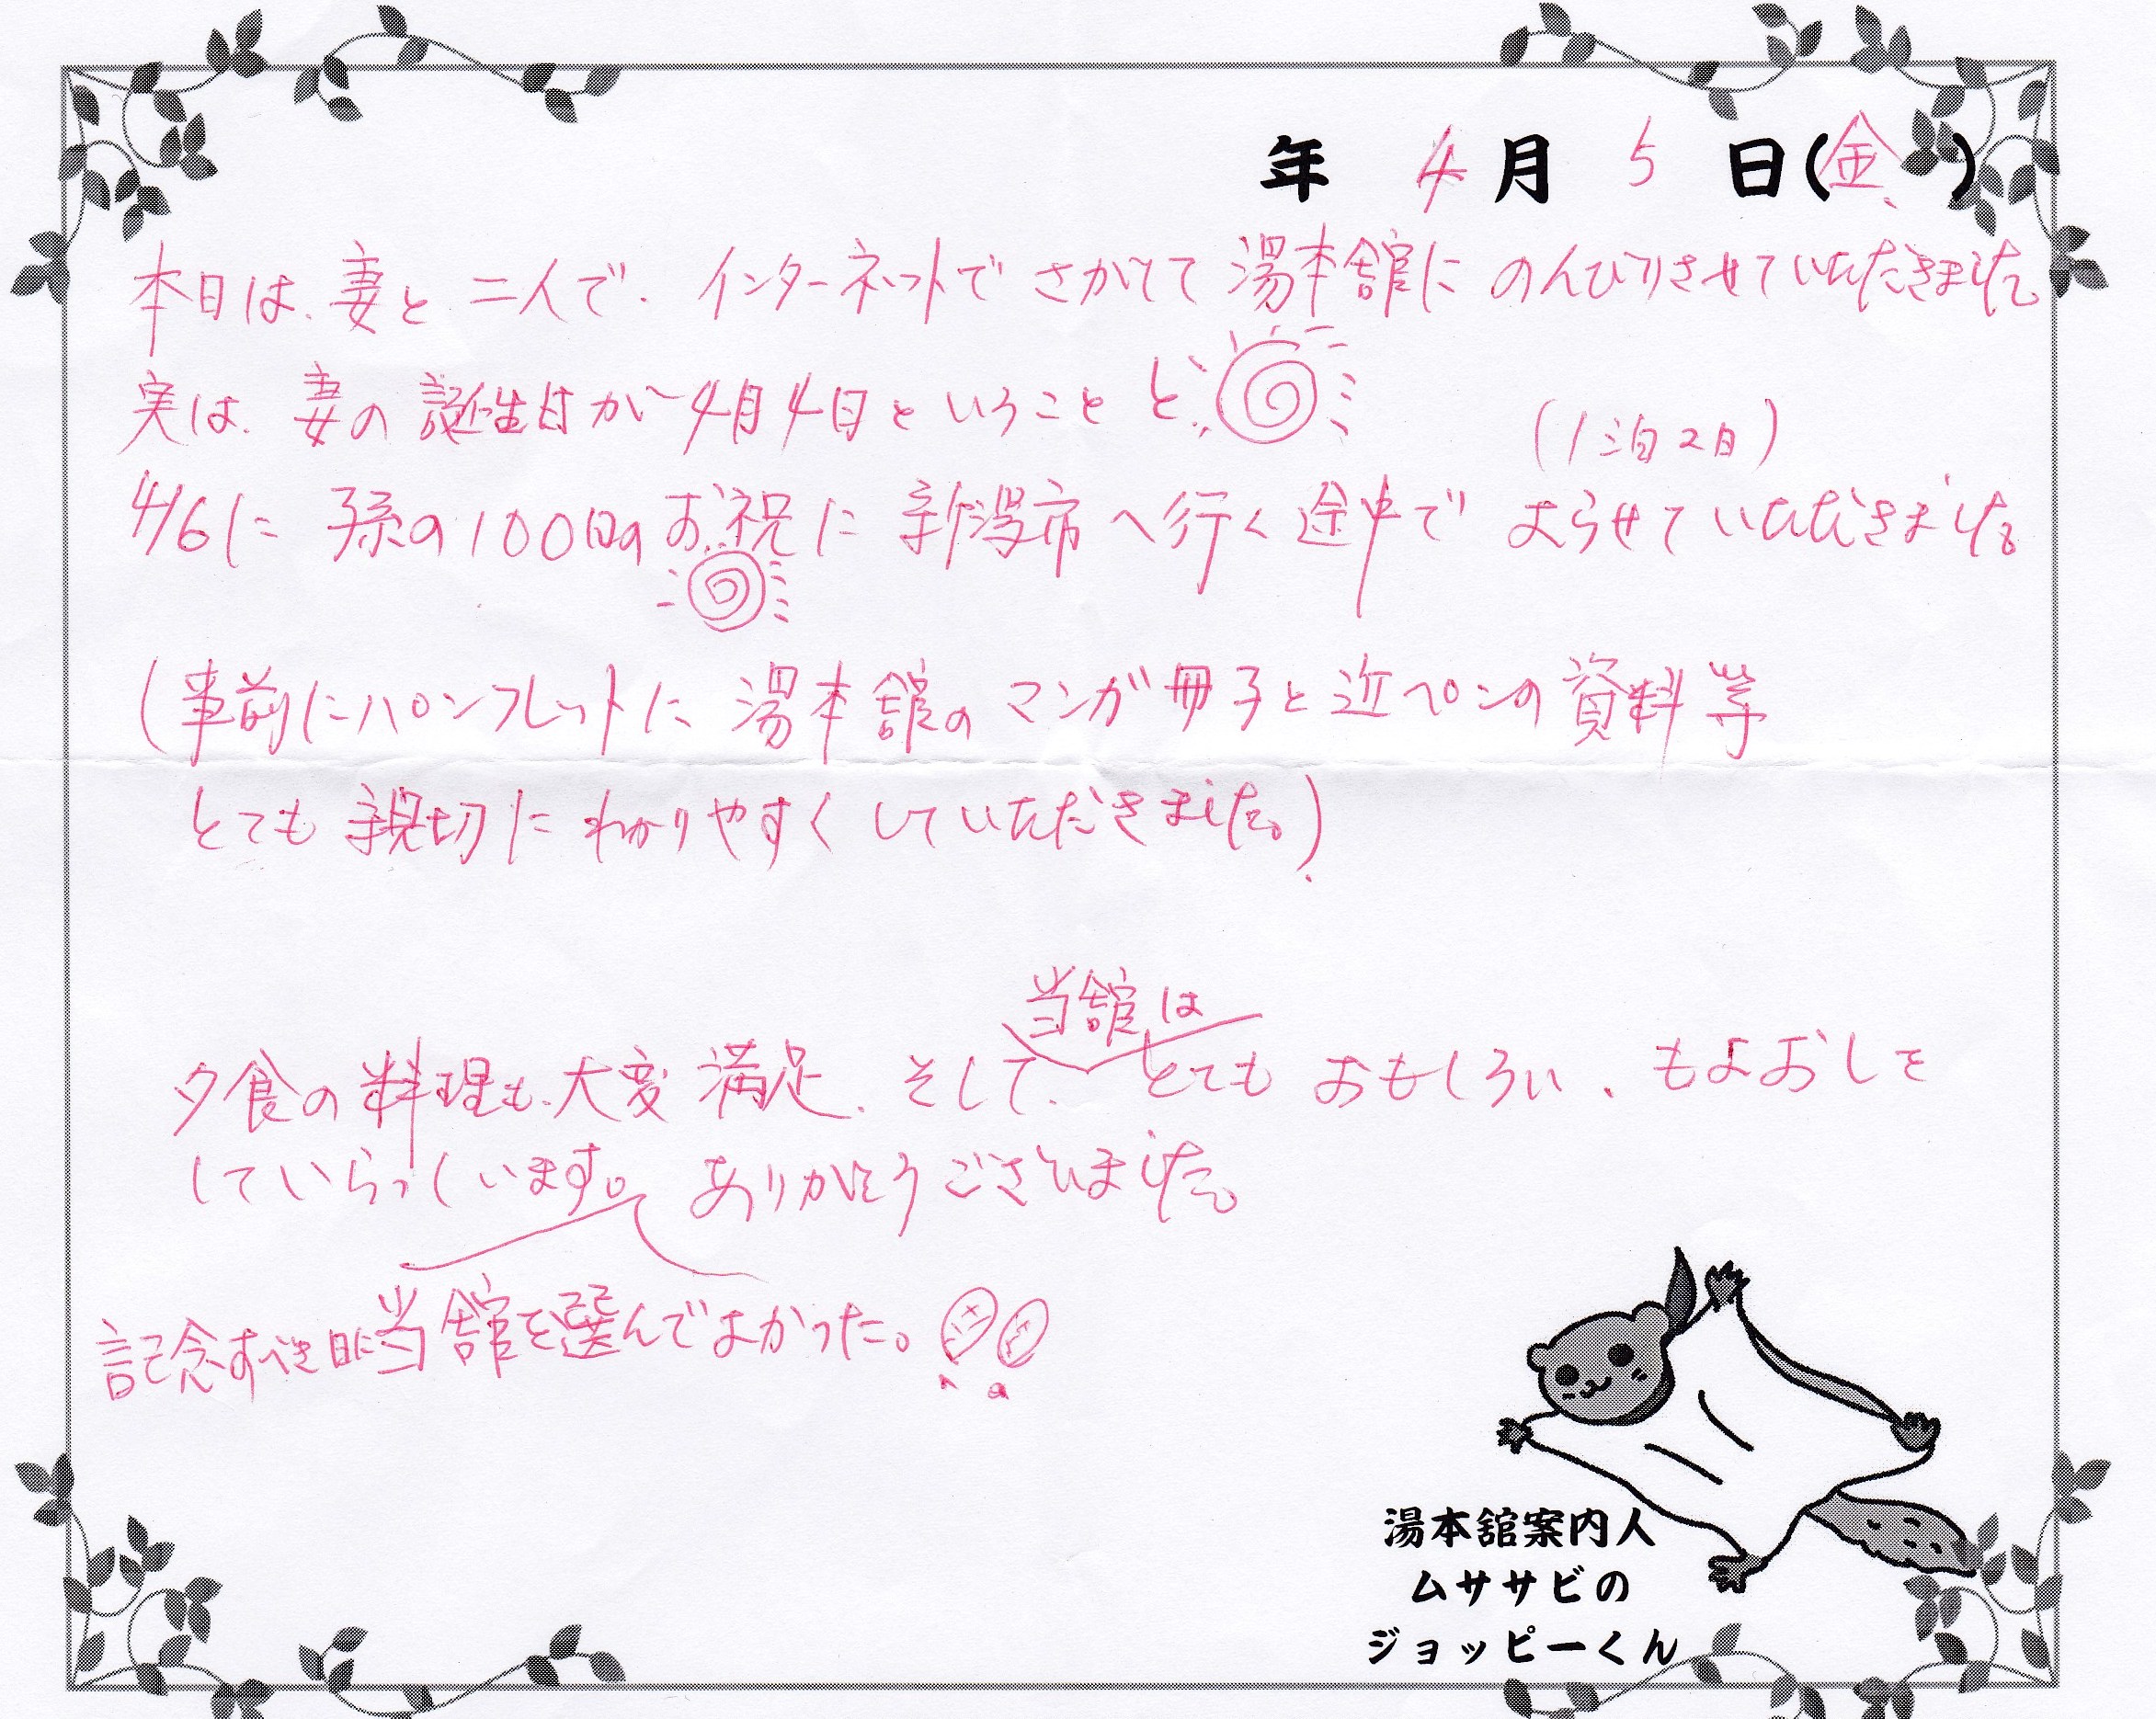 年 4月 5日(金)
本日は、妻と二人で、インターネットでさがして湯本舘にのんびりさせていただきました。
実は、妻の誕生日が4月4日ということと、
(1泊2日)
4/6に孫の100日のお祝に新潟市へ行く途中でよらせていただきました。
(事前にパンフレットに湯本舘のマンガ冊子と近ペンの資料等
とても親切にわかりやすくしていただきました。)
当舘は
夕食の料理も、大変満足、そして、とてもおもしろい、もよおしを
していらっしいます。ありがとうございました。
記念すべき日に当舘を選んでよかった。!!
湯本舘案内人
ムササビの
ジョッピーくん